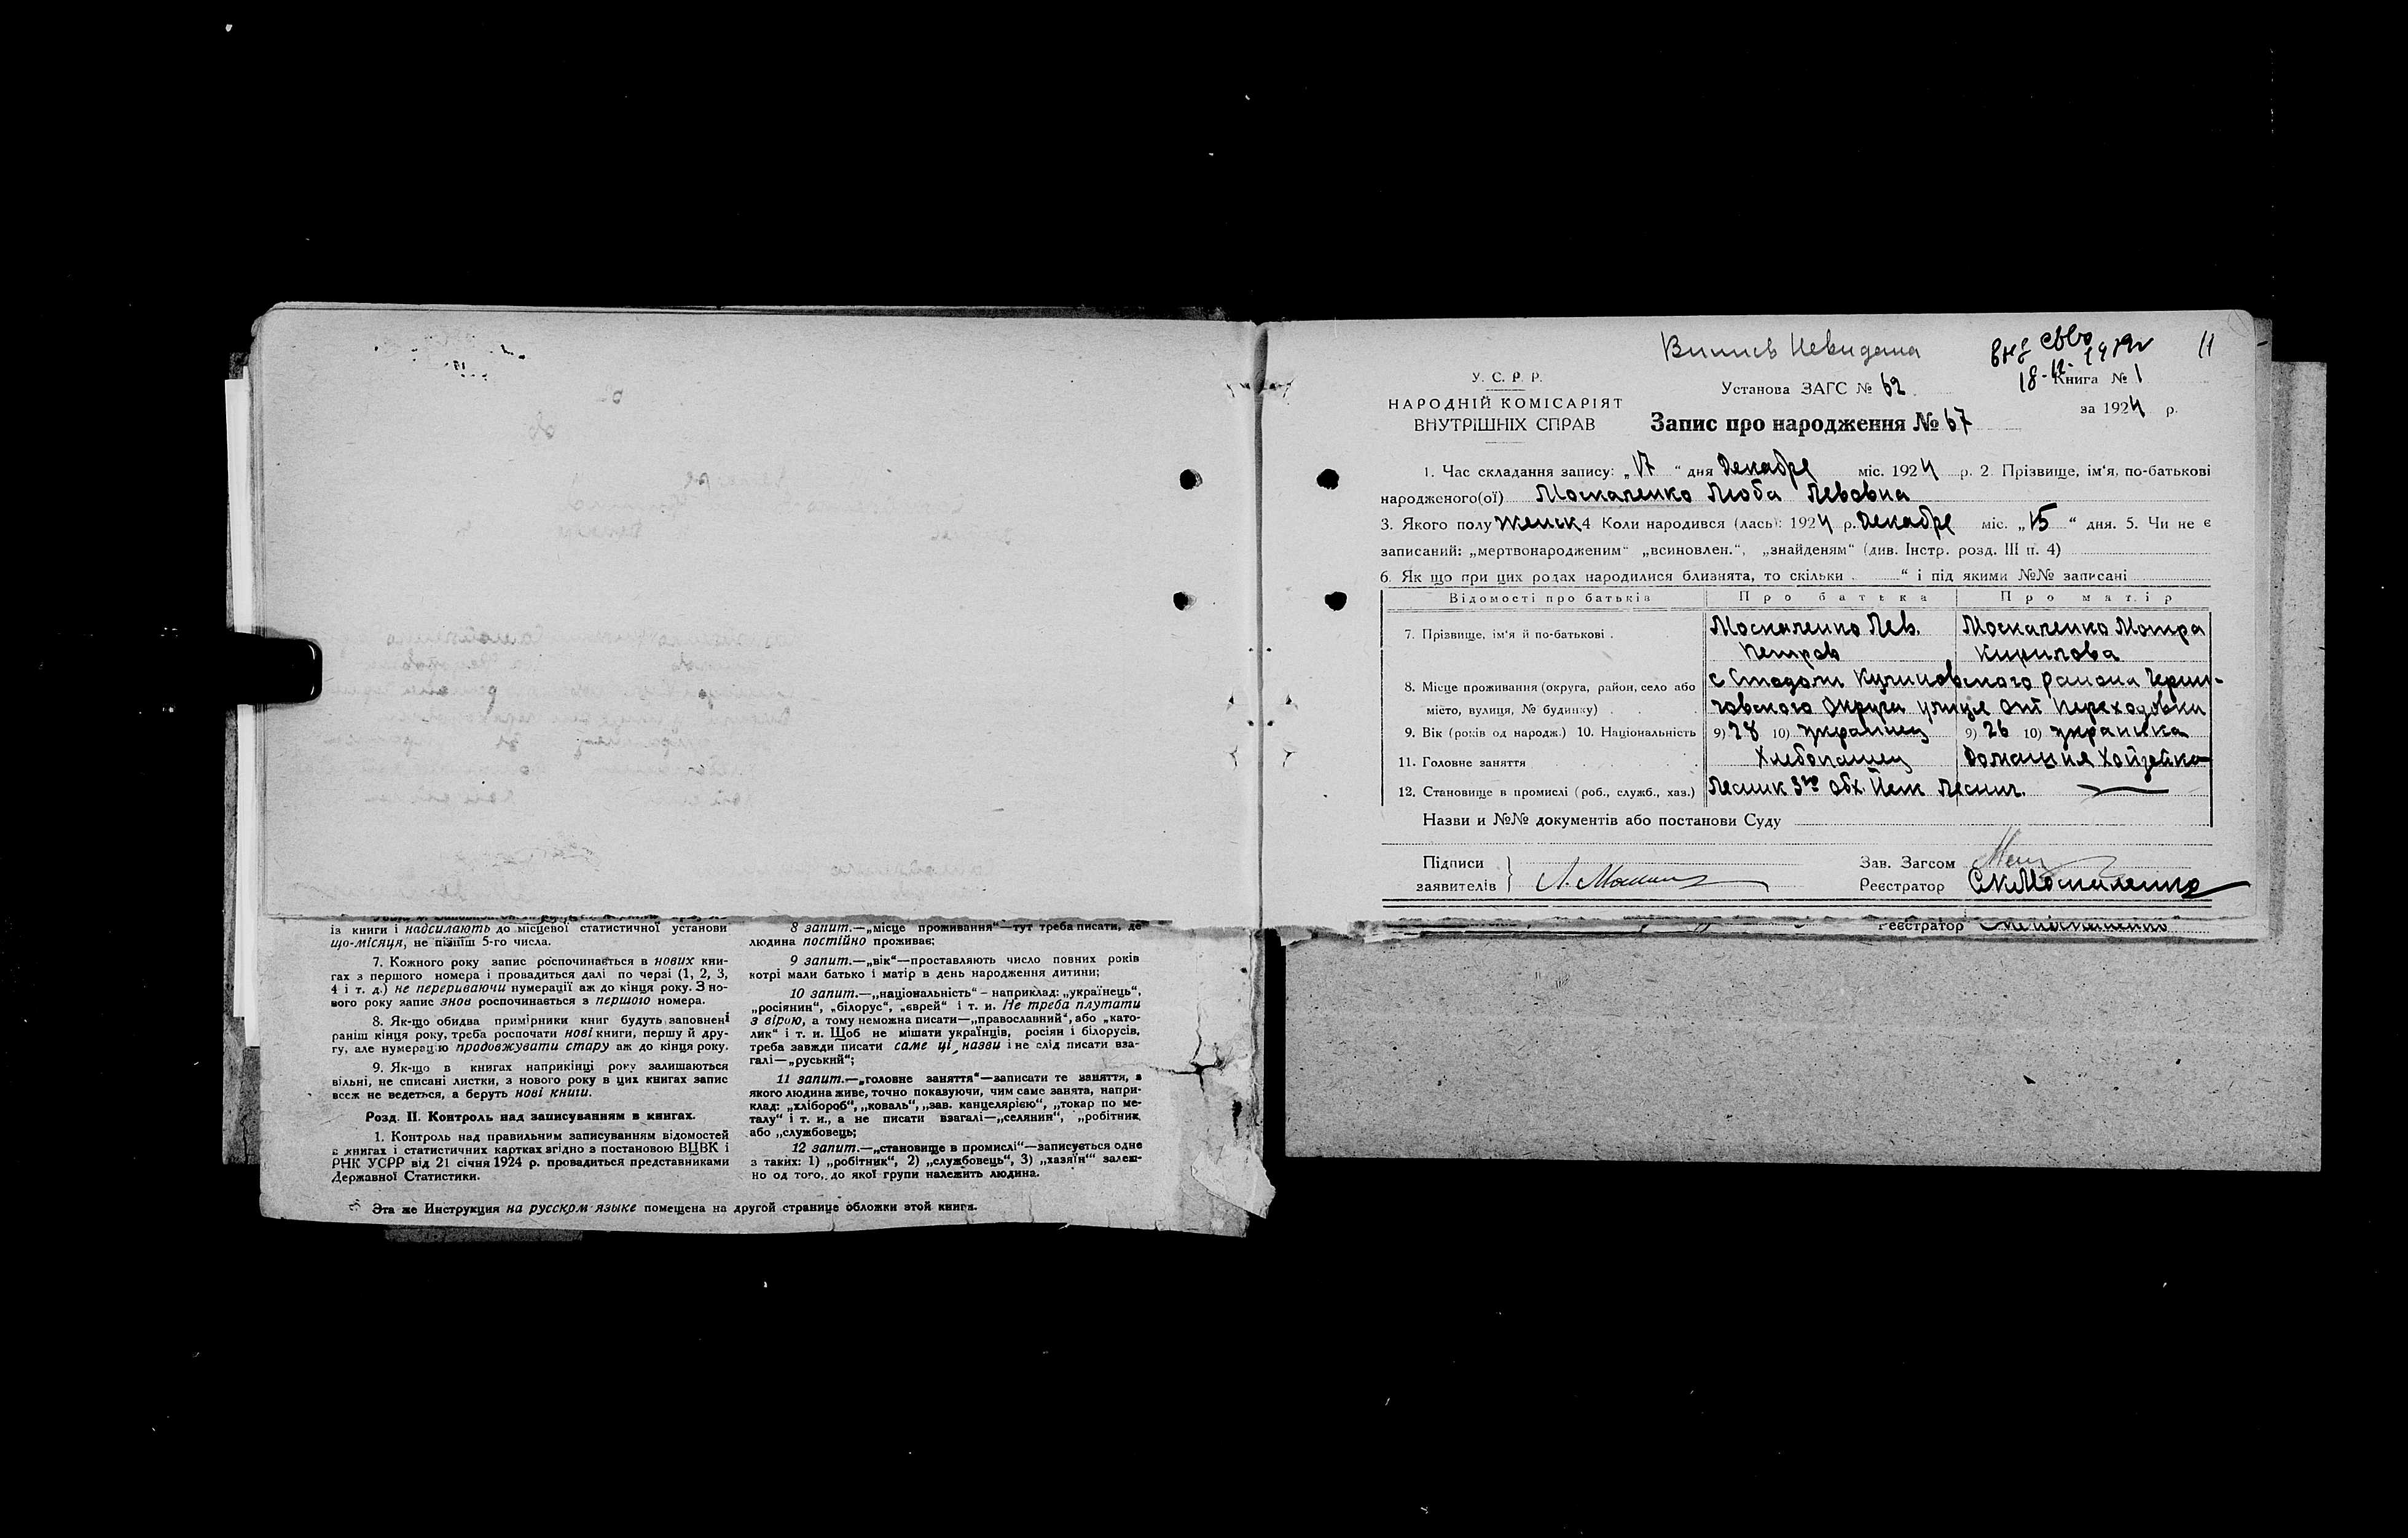 із книги і надсилають до місцевої статистичної установи
що-місяця, не пізніш 5-го числа.
7. Кожного року запис роспочинається в нових кни-
гах з першого номера і провадиться далі по черзі (1, 2, 3,
4 і т. д.) не перериваючи нумерації аж до кінця року. З но-
вого року запис знов роспочинається з першого номера.
8. Як-що обидва примірники книг будуть заповнені
раніш кінця року, треба роспочати нові книги, першу й дру-
гу, але нумерацію продовжувати стару аж до кінця року.
9. Як-що в книгах наприкінці року залишаються
вільні, не списані листки, з нового року в цих книгах запис
всеж не ведеться, а беруть нові книги.
Розд. II. Контроль над записуванням в книгах.
1. Контроль над правильним записуванням відомостей
в книгах і статистичних картках згідно з постановою ВЦВК і
РНК УСРР від 21 січня 1924 р. провадиться представниками
Державної Статистики.
8 запит.—„місце проживання“—тут треба писати, де
людина постійно проживає;
9 запит.—„вік“—проставляють число повних років
котрі мали батько і матір в день народження дитини;
10 запит.—„національність“ – наприклад: „українець“,
„росіянин“, „білорус“, „єврей“ і т. и. Не треба плутати
з вірою, а тому неможна писати—„православний“, або „като-
лик“ і т. и. Щоб не мішати українців, росіян і білорусів,
треба завжди писати саме ці назви і не слід писати вза-
галі—„руський“;
11 запит.—„головне заняття“—записати те заняття, з
якого людина живе, точно показуючи, чим саме занята, напри-
клад: „хлібороб“, „коваль“, „зав. канцелярією“, „токар по ме-
талу“ і т. и., а не писати взагалі—„селянин“, „робітник
або „службовець;
12 запит.—„становище в промислі“—записується одне
з таких: 1) „робітник“, 2) „службовець“, 3) „хазяїн“ залеж-
но од того, до якої групи належить людина.
Эта же Инструкция на русском языке помещена на другой странице обложки этой книги.
11
У. С. Р. Р.
НАРОДНІЙ КОМІСАРІЯТ
ВНУТРІШНІХ СПРАВ
Установа ЗАГС № 62
Запис про народження № 67
Книга № 1
за 1924 р.
1. Час складання запису: „17“ дня Декабря міс. 1924 р. 2. Прізвище, ім'я, по-батькові
народженого(ої) Москаленко Люба Левовна
3. Якого полу женск 4 Коли народився (лась): 1924 р. Декабря міс. „15“ дня. 5. Чи не є
записаний: „мертвонародженим“ „всиновлен.“, „знайденям“ (див. Інстр. розд. III п. 4)
6. Як що при цих родах народилися близнята, то скільки “ і під якими №№ записані
Відомості про батьків Про батька Про матір
7. Прізвище, ім'я й по-батькові . Москаленко Лев. Москаленко Мотра
Петров Кирилова
8. Місце проживання (округа, район, село або с Стодоли Куликовского района Черни-
місто, вулиця, № будинку) говского Округи улиця Переходовки
9. Вік (років од народж.) 10. Національність 9) 28 10) украинец 9) 26 10) украинка
11. Головне заняття Хлебопашец Домашня
12. Становище в промислі (роб., служб., хаз.) Лесник 3го Обх.
Назви и №№ документів або постанови Суду
Підписи
заявителів
Зав. Загсом
Реєстратор Москаленко
Реєстратор